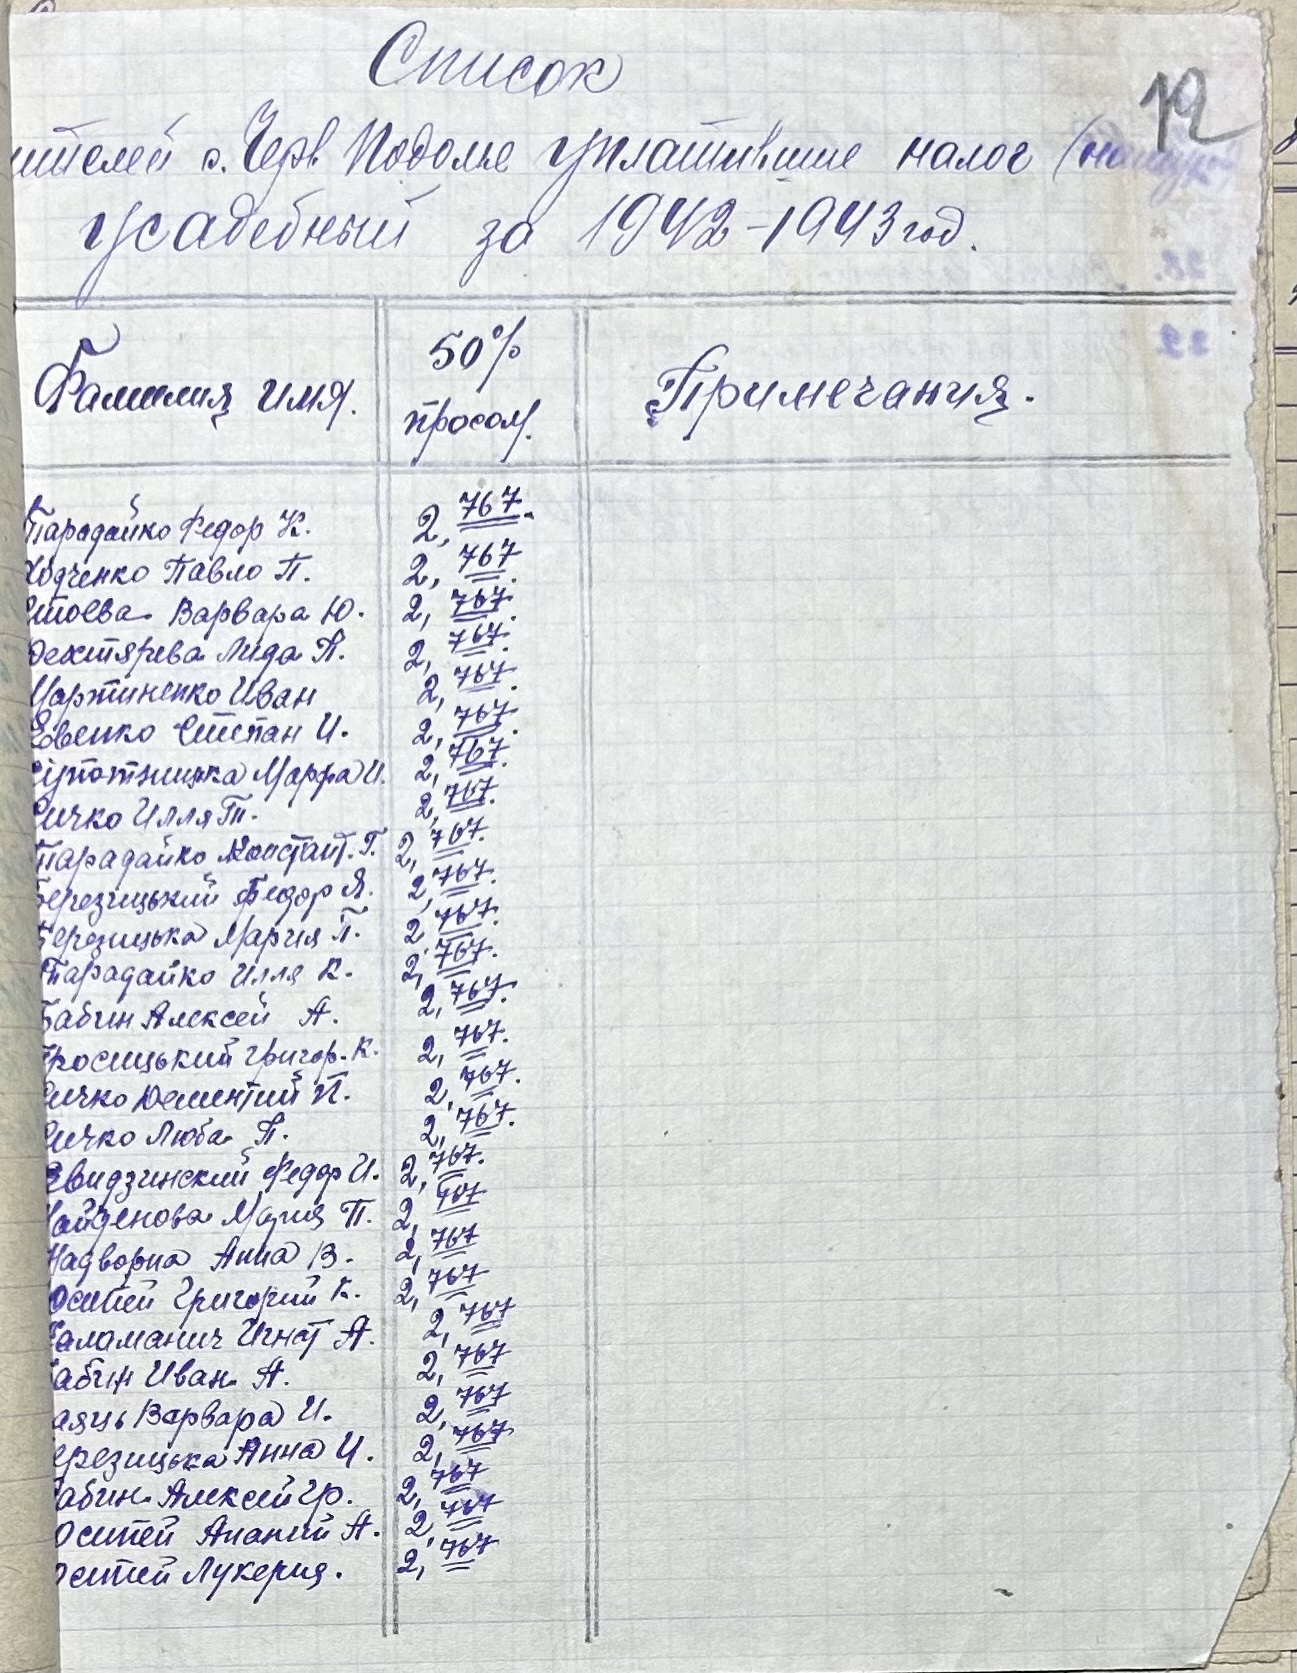 Список
12
ителей с. Черв Подоле уплатившие налог
усадебный за 1942-1943 год.
Фамилия имя. 50% просом. Примечания.
Парадайко Федор К. 2,767.
Ходченко Павло П. 2,767.
Варвара Ю. 2,767.
Дехтярева Лида П. 2,767.
Мартиненко Иван 2,767.
Степан И. 2,767.
Марфа И. 2,767.
ичко Илля Т. 2,767.
Парадайко Констант. Г. 2,767.
Березицький Федор Я. 2,767.
Березицька Мария П. 2,767.
Парадайко Илля К. 2,767.
Бабин Алексей А. 2,767.
Григор. К. 2,767.
ичко Дементий П. 2,767.
ичко Люба П. 2,767.
Свидзинский Федор И. 2,767.
Найденова Мария П. 2,
Надворна Анна В. 2,767
Осипей Григорий К. 2,767
аламанич Игнат А. 2,767
абин Иван А. 2,767
аяць Варвара И. 2,767
ерезицька Анна И. 2,767
абин Алексей Гр. 2,767
Осипей Ананий А. 2,767
осипей Лукерия. 2,767